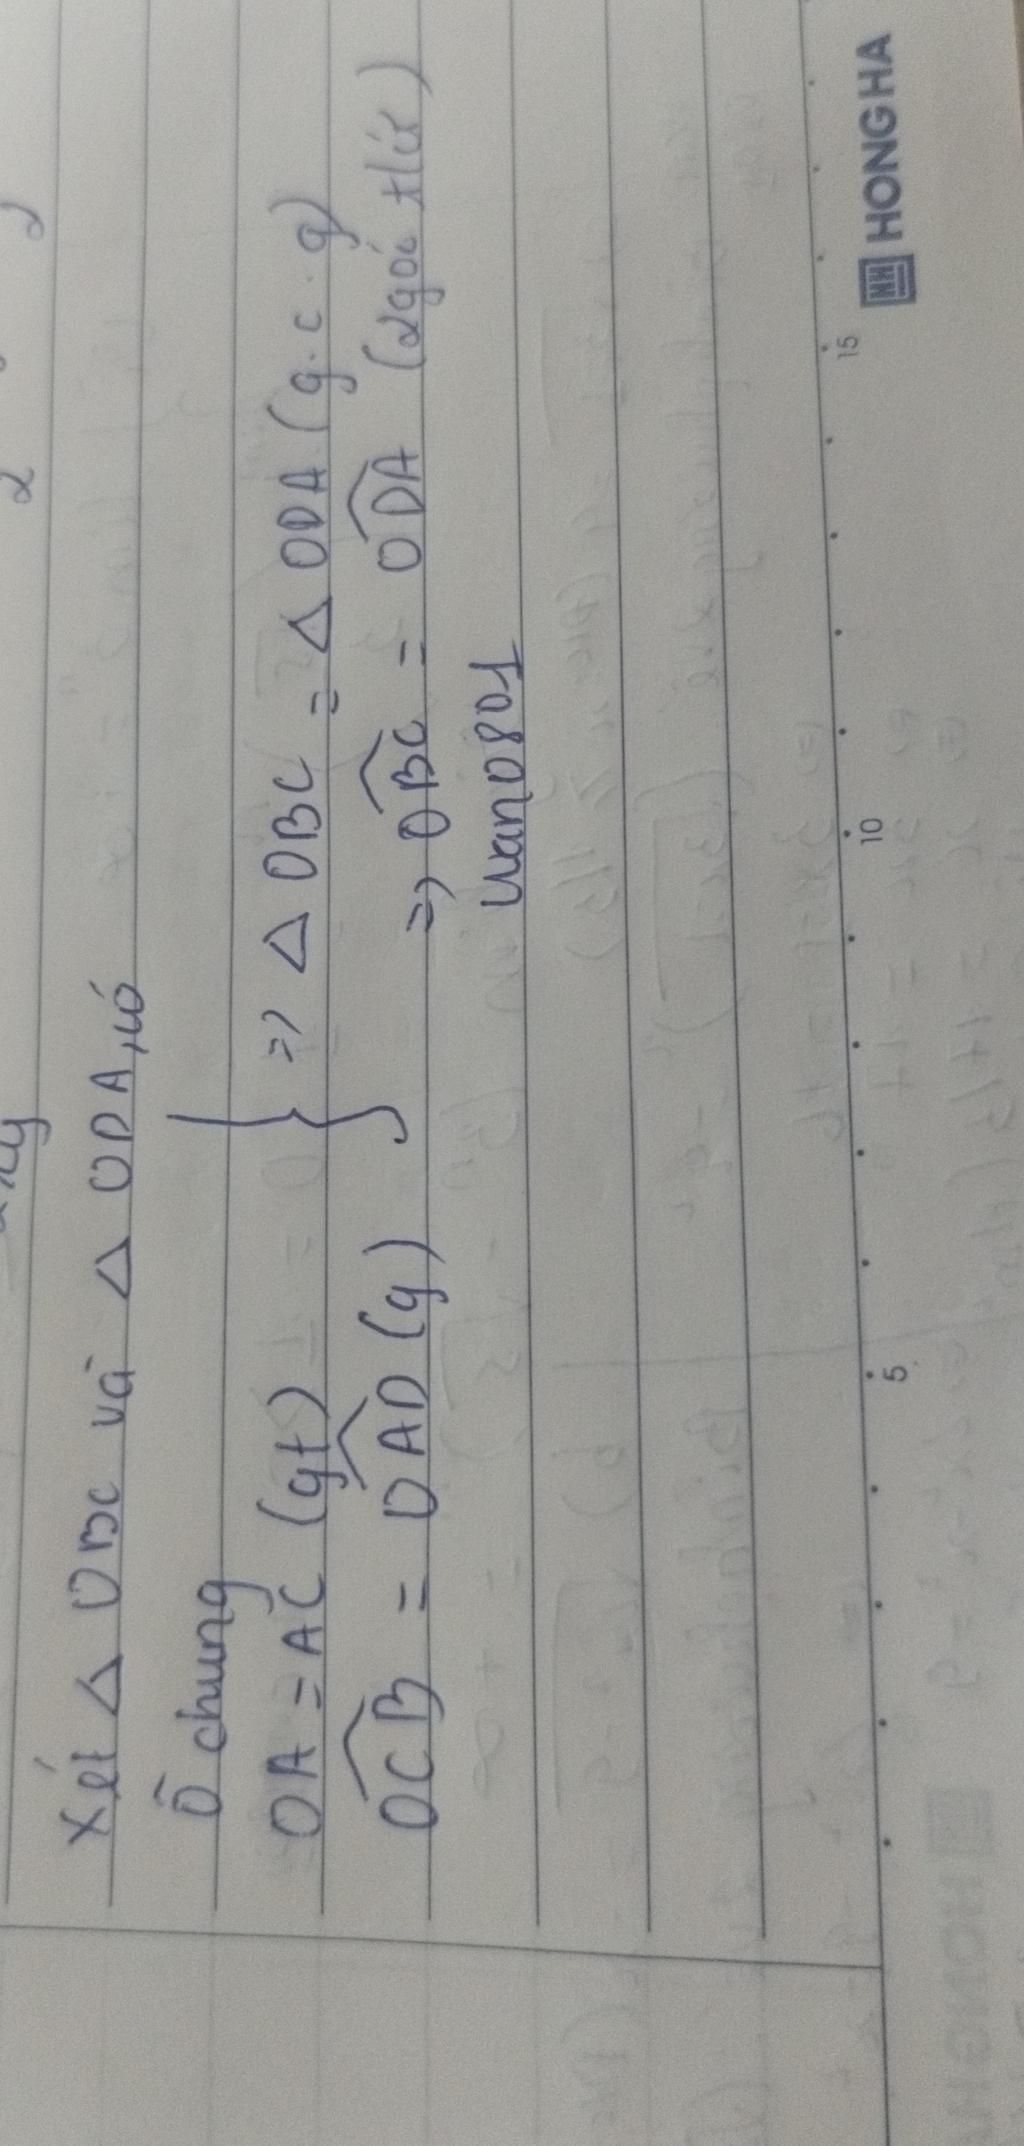 Xét Δ OBC và Δ ODA, có
Ô chung
OA = AC (gt)
OCB = OAD (g)
} => Δ OBC = Δ ODA (g.c.g)
=> OBC = ODA (2góc t/ứ)
uan0801
5 10 15
HONG HA